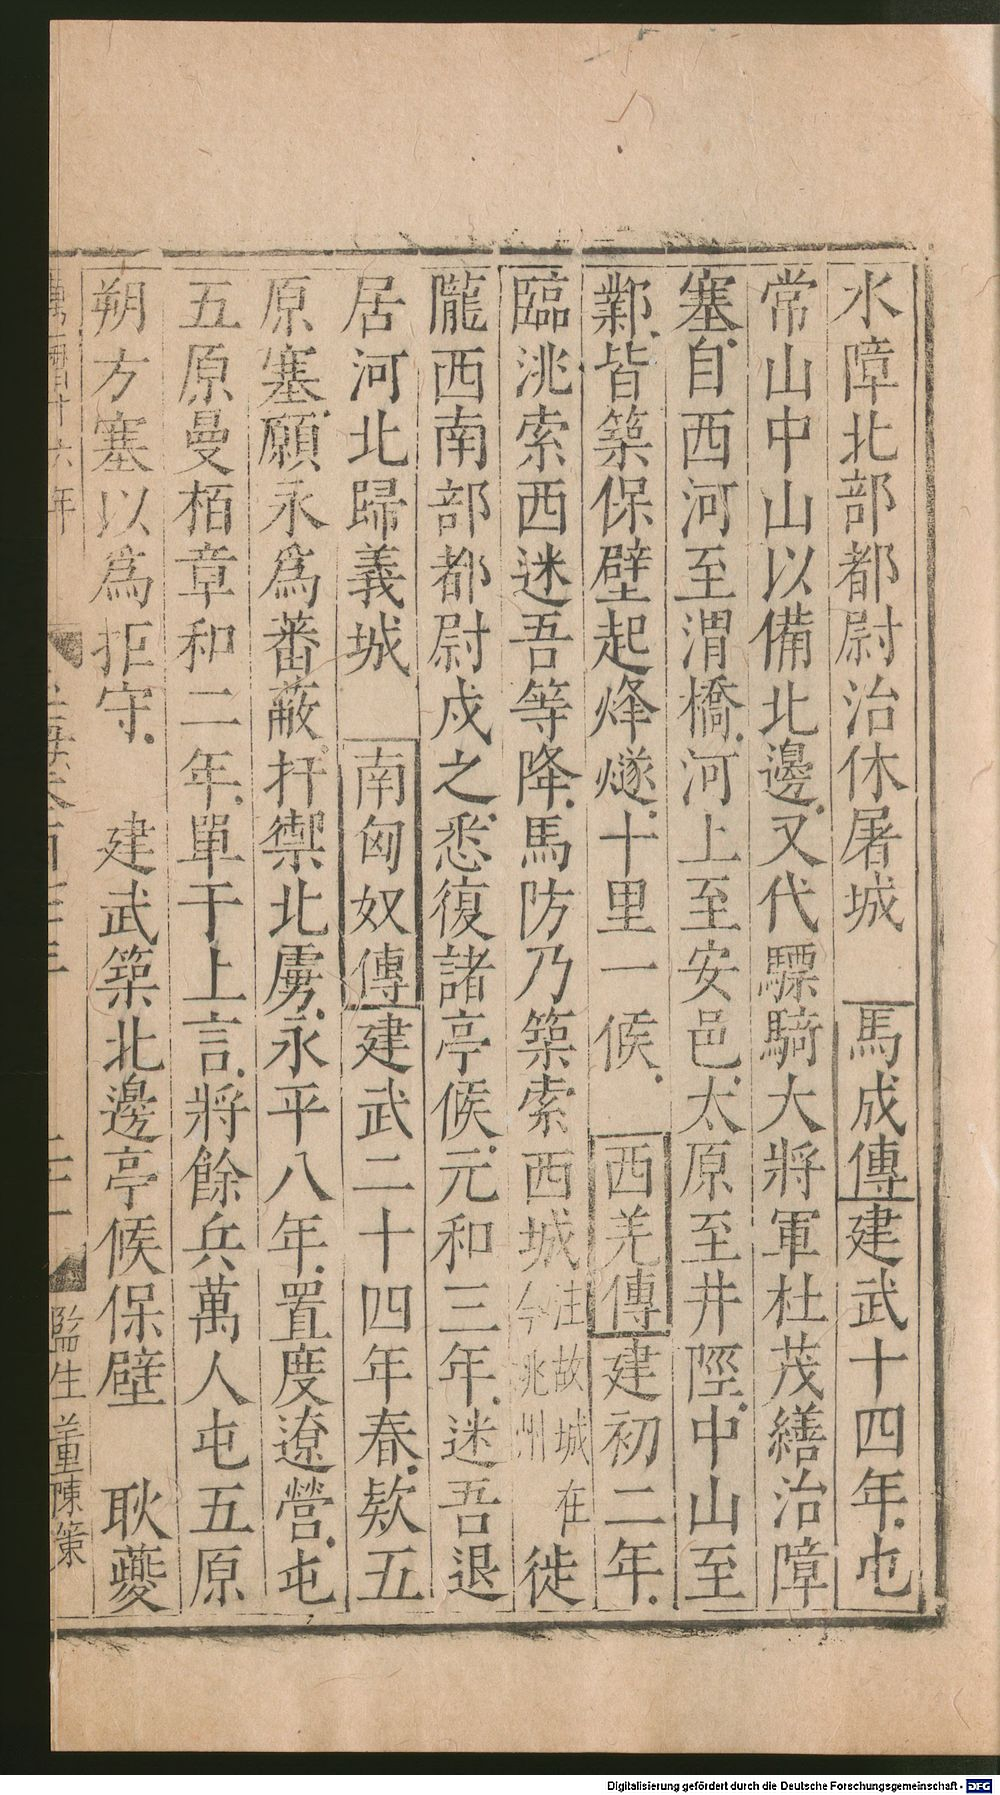 水障北部都尉治休屠城　馬成傳建武十四年屯
常山中山以備北邊又代驃騎大將軍杜茂繕治障
塞自西河至渭橋河上至安邑太原至井陘中山至
鄴皆築保壁起烽燧十里一候　西羌傳建初二年
臨洮索西迷吾等降馬防乃築索西城注故城在今洮州徙
隴西南部都尉戍之悉復諸亭候元和三年迷吾退
居河北歸義城　南匈奴傳建武二十四年春欵五
原塞願永爲蕃蔽扞禦北虜永平八年置度遼營屯
五原曼栢章和二年單于上言將餘兵萬人屯五原
朔方塞以爲拒守　建武築北邊亭候保壁　耿夔
十六年
監生董陳策
Digitalisierung gefördert durch die Deutsche Forschungsgemeinschaft - DFG